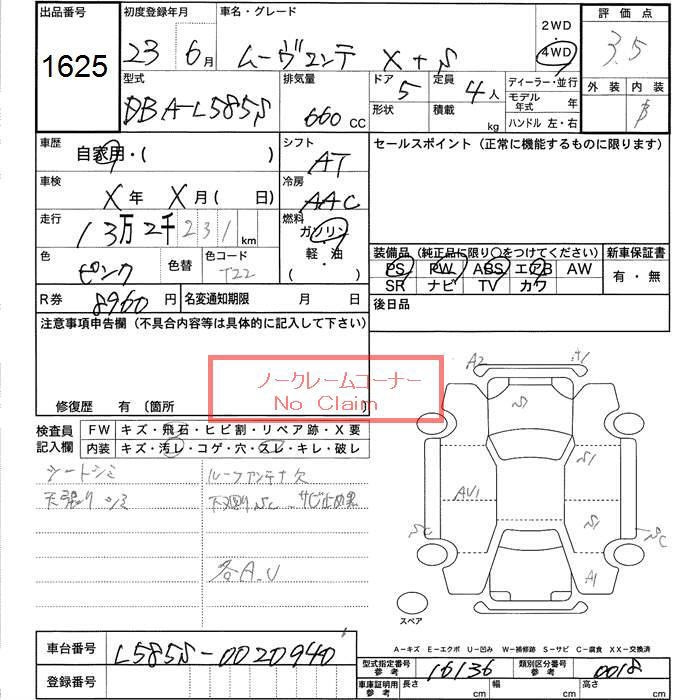 出品番号 初度登録年月 車名・グレード 2WD 評価点
1625 23年 6月 ムーヴコンテ X+S 4WD 3.5
型式 排気量 ドア 定員 ディーラー・並行 外装 内装
DBA-L585S 660 CC 5 4人 モデル年式 年 B
形状 積載 kg ハンドル 左・右
車歴 自家用・( ) シフト AT セールスポイント (正常に機能するものに限ります)
車検 X年 X月 ( 日) 冷房 AAC
走行 13万2千231 km 燃料 ガソリン
色 ピンク 色替 色コード T22 軽・油 ( )
装備品 (純正品に限り○をつけてください) 新車保証書
PS PW ABS エアB AW 有・無
SR ナビ TV カワ
R券 8960円 名変通知期限 月 日 後日品
注意事項申告欄 (不具合内容等は具体的に記入して下さい)
ノークレームコーナー
No Claim
修復歴 有 〔箇所 〕
検査員記入欄 FW キズ・飛石・ヒビ割・リペア跡・X要
内装 キズ・汚レ・コゲ・穴・スレ・キレ・破レ
シートシミ ルーフアンテナ欠
天張り シミ 下廻りSC サビ止め黒
各A.U
A2
A1
S
S1
AU1
S1
SC
SC
A1
スペア
A-キズ E-エクボ U-凹み W-補修跡 S-サビ C-腐食 XX-交換済
車台番号 L585S-0020940
型式指定番号 参考 16136 類別区分番号 参考 0018
登録番号 車庫証明用 参考 長さ cm 幅 cm 高さ cm